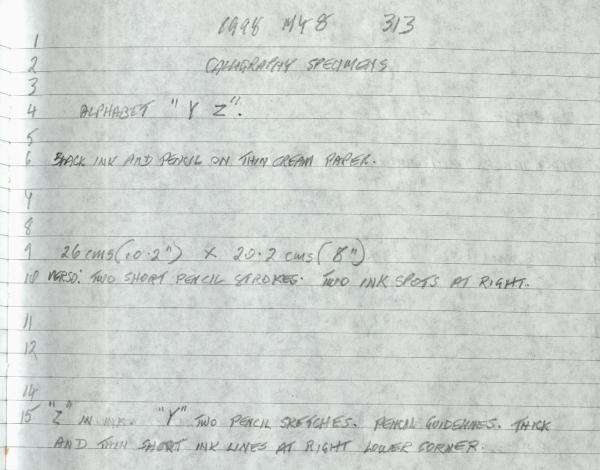 1998 MY8 313
1
2 CALLIGRAPHY SPECIMENS
3
4 ALPHABET "Y Z".
5
6 BLACK INK AND PENCIL ON THIN CREAM PAPER.
7
8
9 26 cms (10.2") X 20.2 cms (8")
10 VERSO: TWO SHORT PENCIL STROKES. TWO INK SPOTS AT RIGHT.
11
12
14
15 "Z" IN INK. "Y" TWO PENCIL SKETCHES. PENCIL GUIDELINES. THICK
AND THIN SHORT INK LINES AT RIGHT LOWER CORNER.